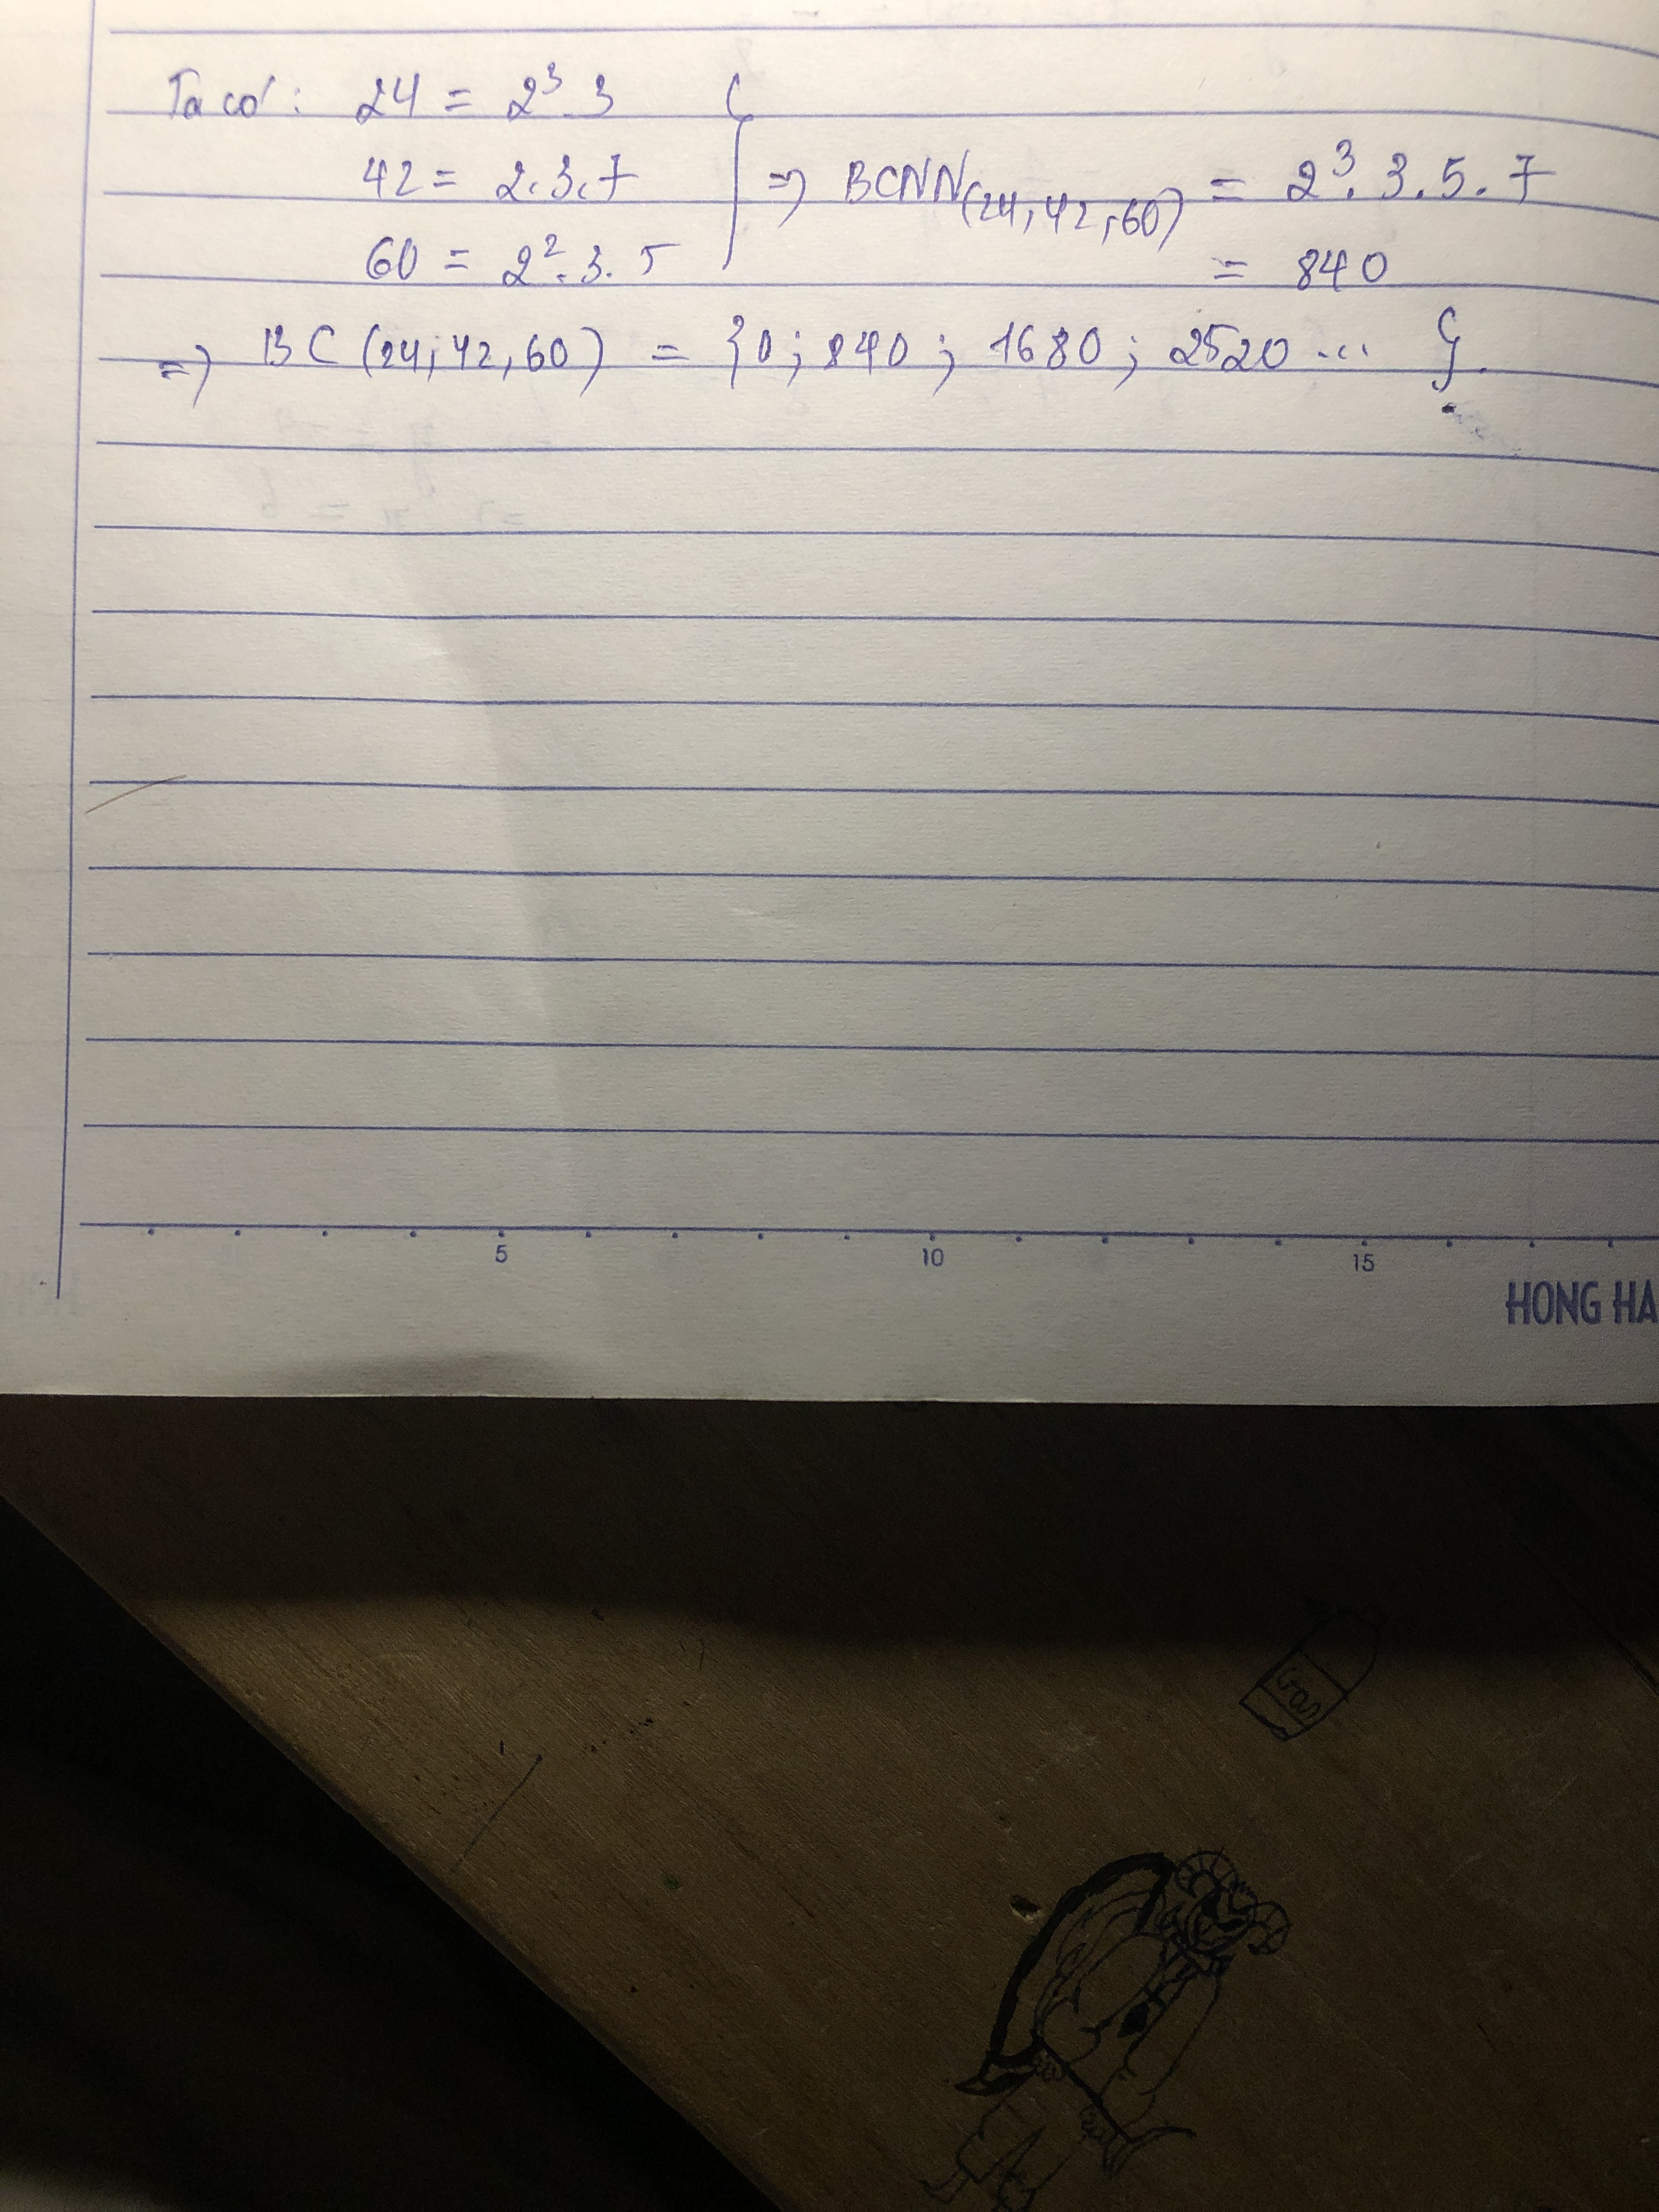 Ta có: 24 = 2³.3
42 = 2.3.7 => BCNN(24,42,60) = 2³.3.5.7
60 = 2².3.5 = 840
=> BC(24,42,60) = {0; 840; 1680; 2520 ... }.
5 10 15
HONG HA